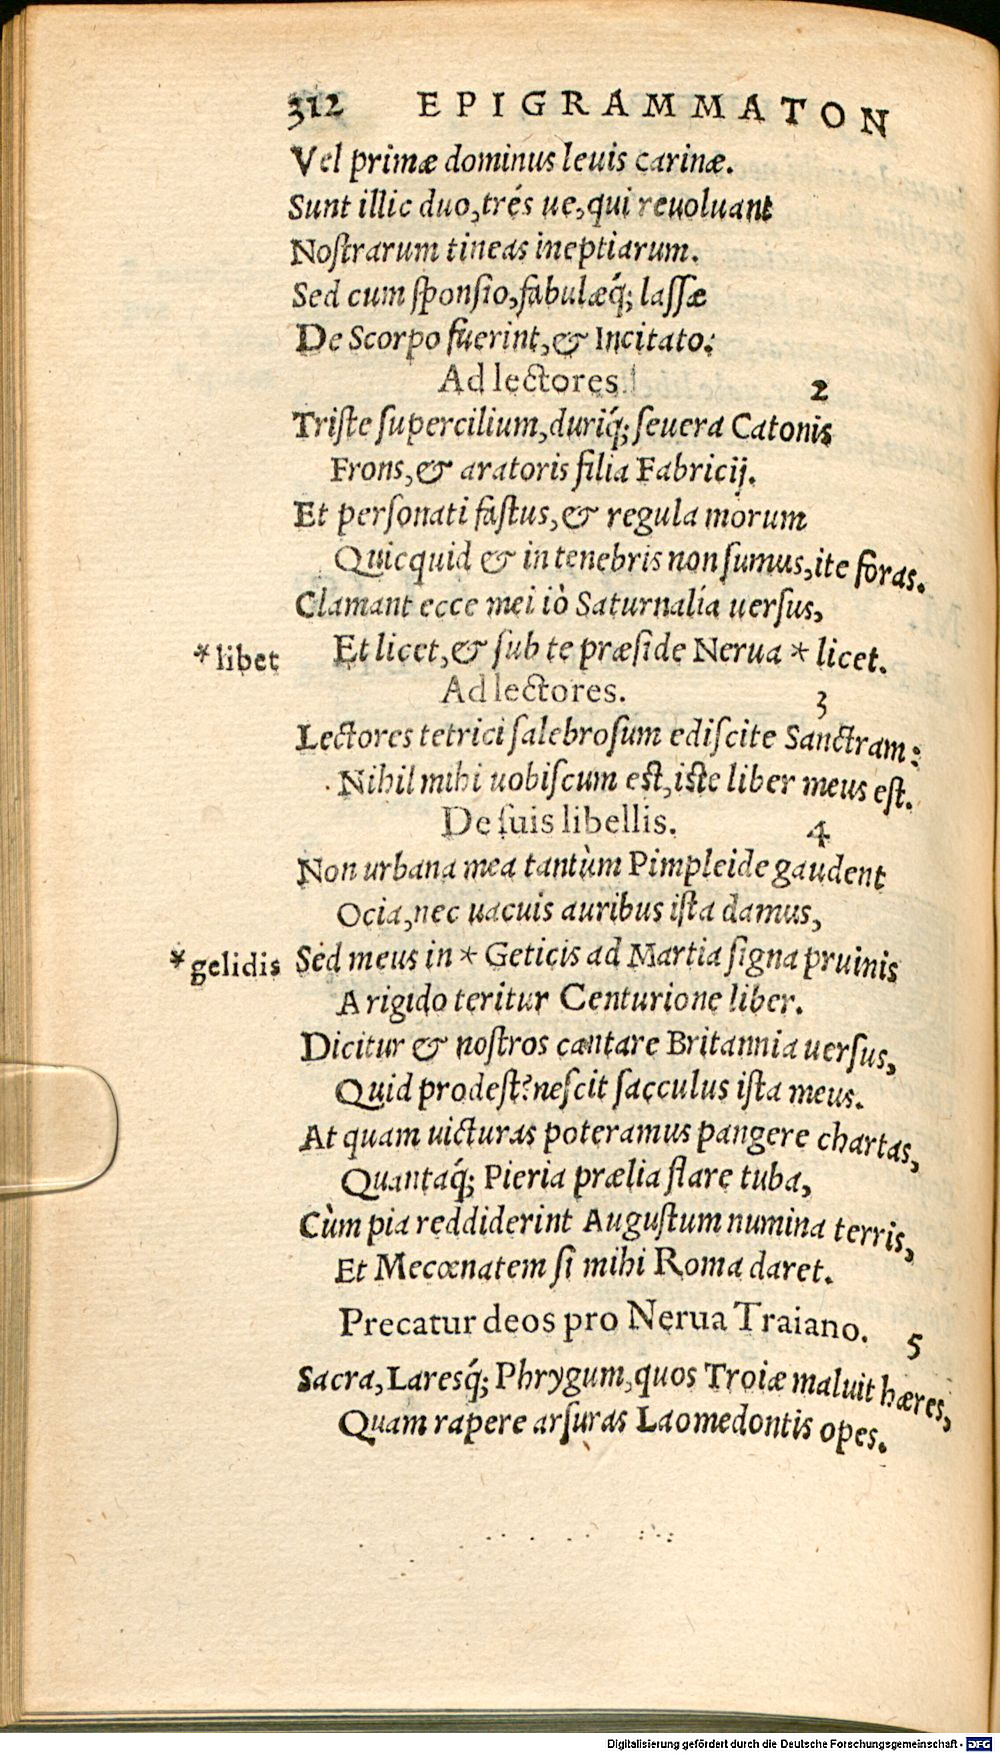 312 EPIGRAMMATON
Vel primæ dominus leuis carinæ.
Sunt illic duo, trés ue, qui reuoluant
Noſtrarum tineas ineptiarum.
Sed cum ſponſio, fabulæq́; laſſæ
De Scorpo fuerint, & Incitato:
Ad lectores. 2
Triſte ſupercilium, duriq́; ſeuera Catonis
Frons, & aratoris filia Fabricij.
Et perſonati faſtus, & regula morum
Quicquid & in tenebris non ſumus, ite foras.
Clamant ecce mei iò Saturnalía uerſus,
*libet Et licet, & ſub te præſide Nerua * licet.
Ad lectores. 3
Lectores tetrici ſalebroſum ediſcite Sanctram:
Nihil mihi uobiſcum eſt, iſte liber meus eſt.
De ſuis libellis. 4
Non urbana mea tantùm Pimpleide gaudent
Ocia, nec uacuis auribus iſta damus,
*gelidis Sed meus in * Geticis ad Martia ſigna pruinis
A rigido teritur Centurione liber.
Dicitur & noſtros cantare Britannia uerſus,
Quid prodeſt? neſcit ſacculus iſta meus.
At quam uicturas poteramus pangere chartas,
Quantaq́; Pieria prælia flare tuba,
Cùm pia reddiderint Auguſtum numina terris,
Et Mecœnatem ſi mihi Roma daret.
Precatur deos pro Nerua Traiano. 5
Sacra, Laresq́; Phrygum, quos Troiæ maluit hæres,
Quam rapere arſuras Laomedontis opes.
Digitalisierung gefördert durch die Deutsche Forschungsgemeinschaft - DFG